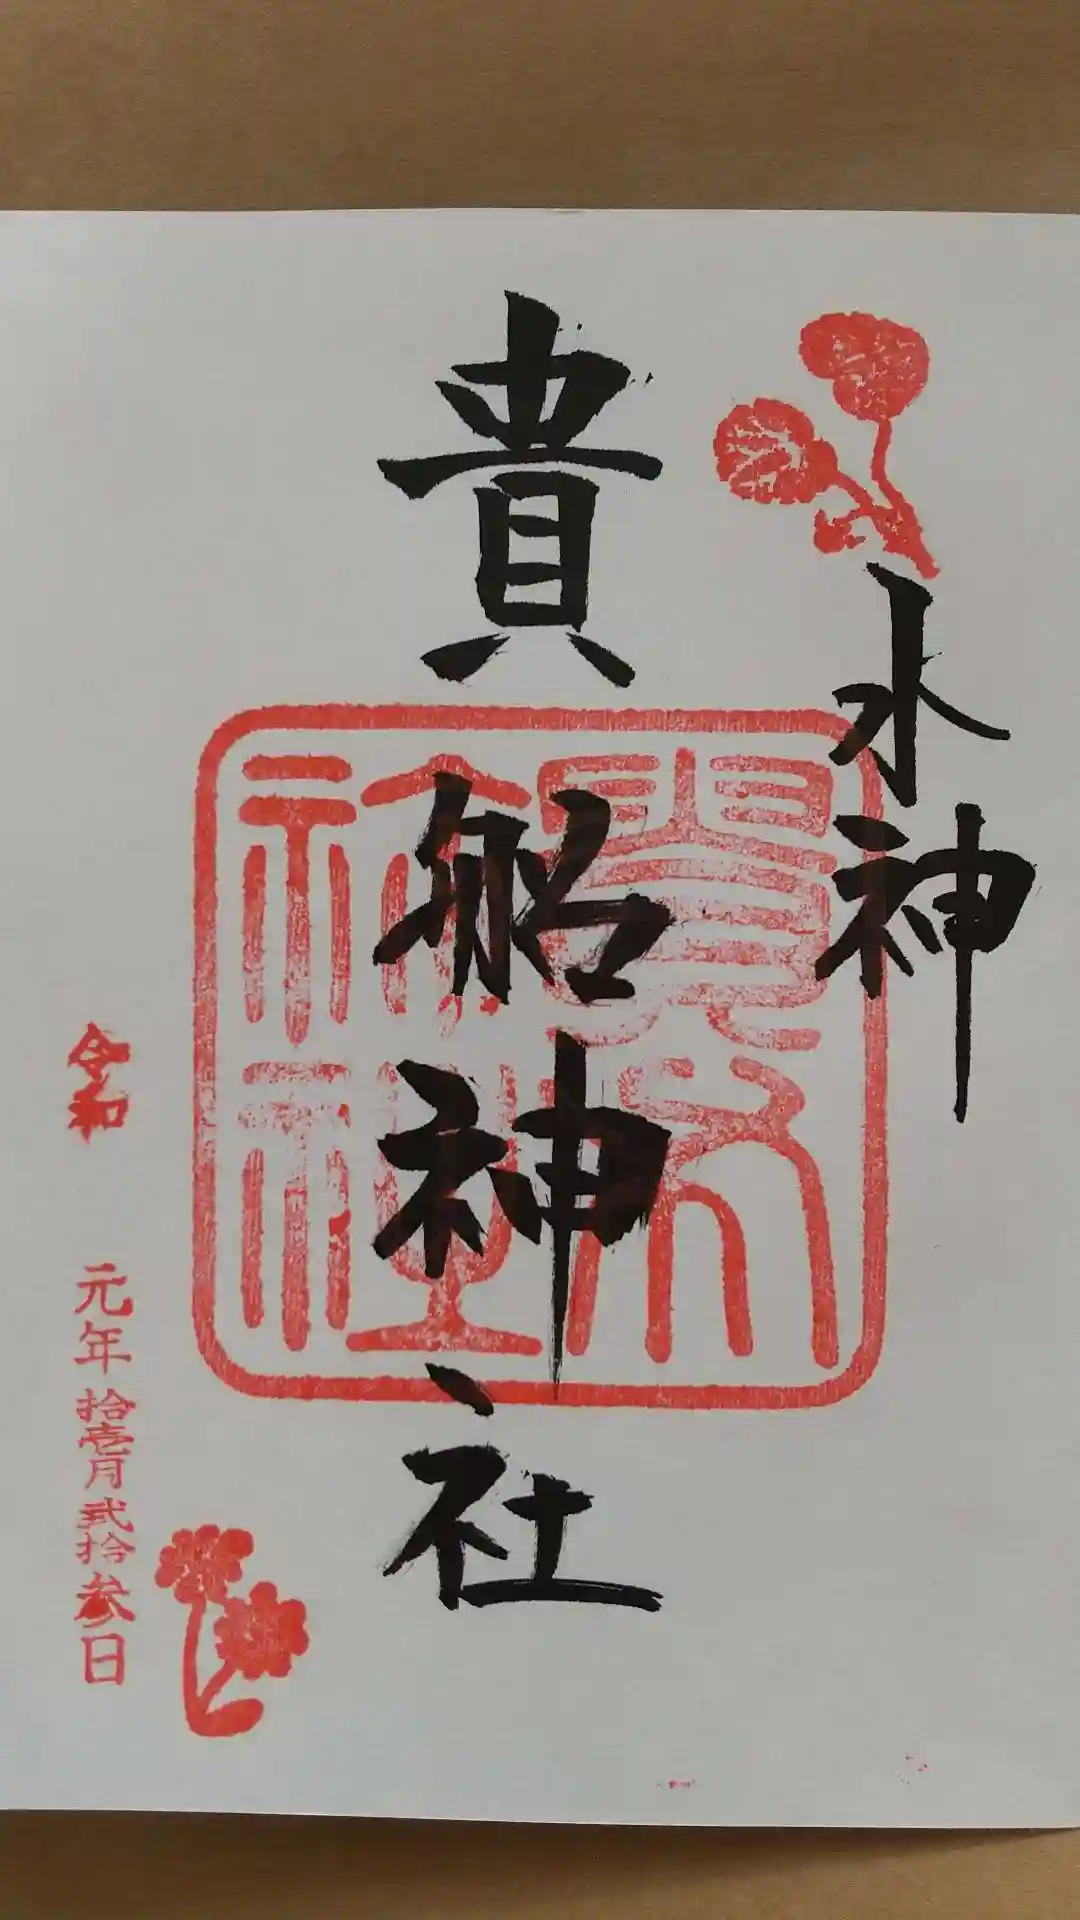 水神
貴船神社
令和元年拾壱月弐拾参日